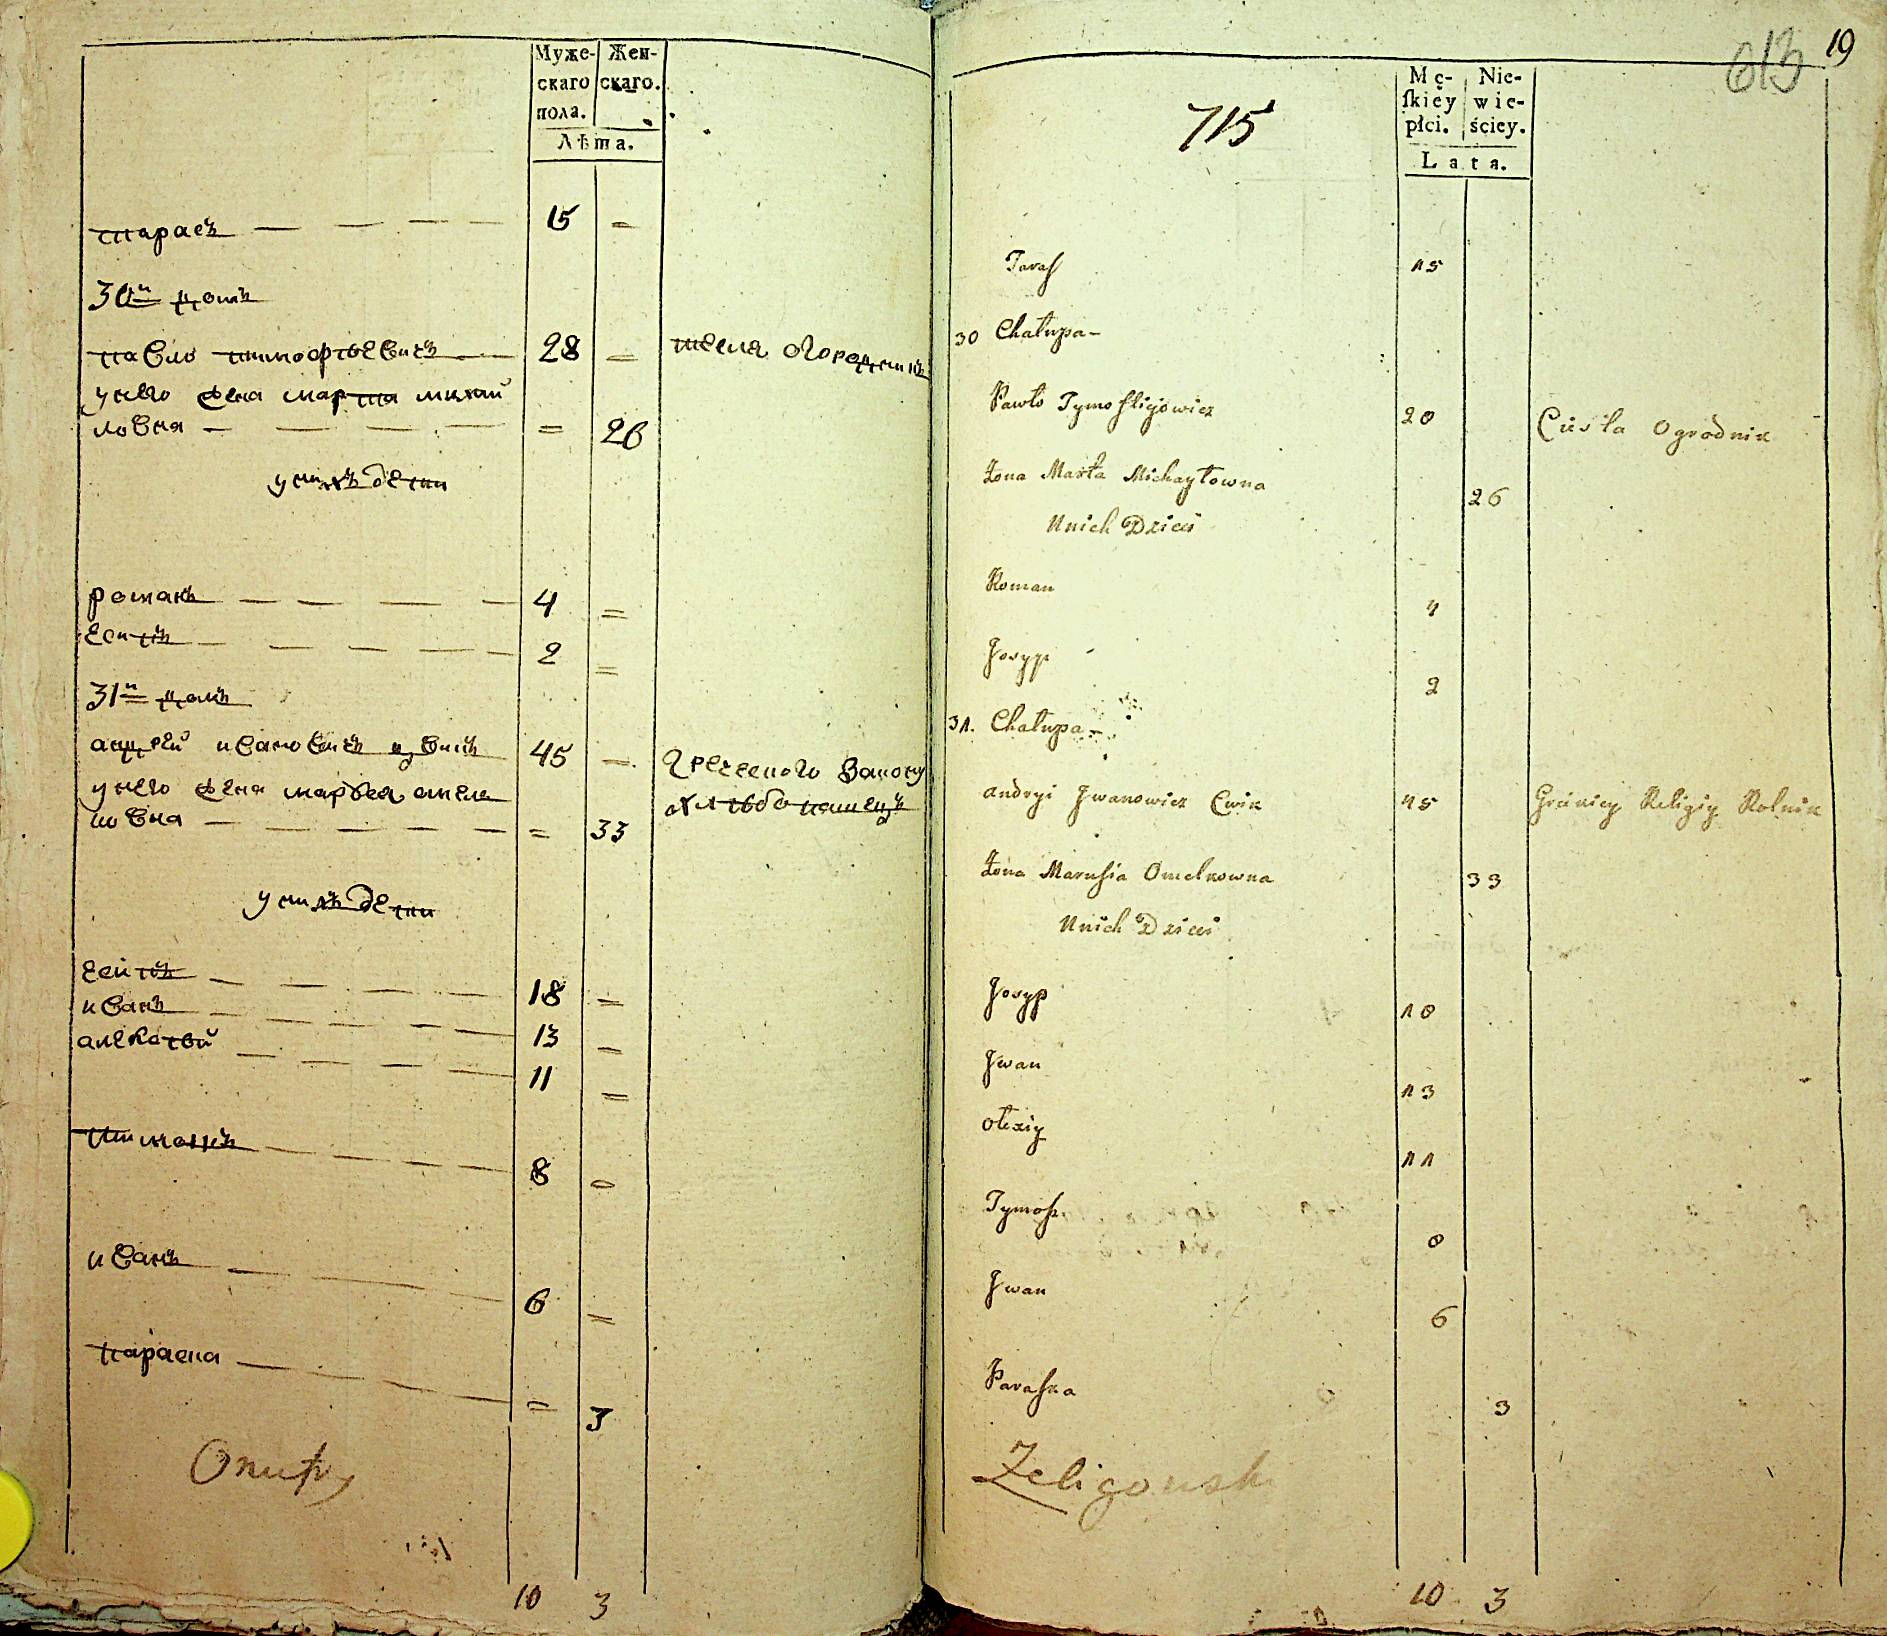 Муже-
скаго
пола.
Жен-
скаго.
Лѣта.
тарасъ 15 =
30й домъ
павло тимофѣевичъ 28 = тесля огородникъ
унего жена марта михай
ловна = 26
унихъ дети
романъ 4 =
есипъ 2 =
31й домъ
андрей ивановичъ цвикъ 45 = греческого закону
унего жена марья омеле
хлѣбопашецъ
ковна = 33
унихъ дети
есипъ 18 =
иванъ 13 =
алексѣй 11 =
тимошъ 8 =
иванъ 6 =
параска = 3
10 3
613 19
715
Mę-
ſkiey
płci.
Nie-
wie-
ściey.
Lata.
Taras 15
30 Chałupa
Pawło Tymofiijowicz 28 Cieśla Ogrodnik
Żona Marta Michayłowna 26
Unich Dzieci
Roman 4
Josyp 2
31. Chałupa
andryi Jwanowicz Cwik 45 Greckiey Religiy Rolnik
Żona Marusia Omelkowna 33
Unich Dzieci
Josyp 18
Jwan 13
ołexiy 11
Tymosz 8
Jwan 6
Paraska 3
Żeligowski
10 3